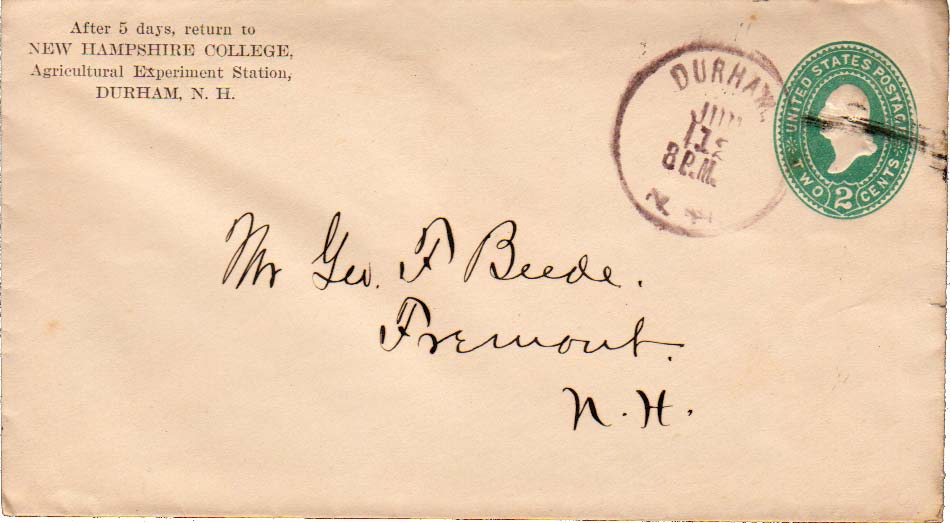 After 5 days, return to
NEW HAMPSHIRE COLLEGE,
Agricultural Experiment Station,
DURHAM, N. H.
DURHAM
8 P.M.
N H
UNITED STATES POSTAGE
TWO 2 CENTS
Mr Geo. F Beede.
Fremont.
N. H.